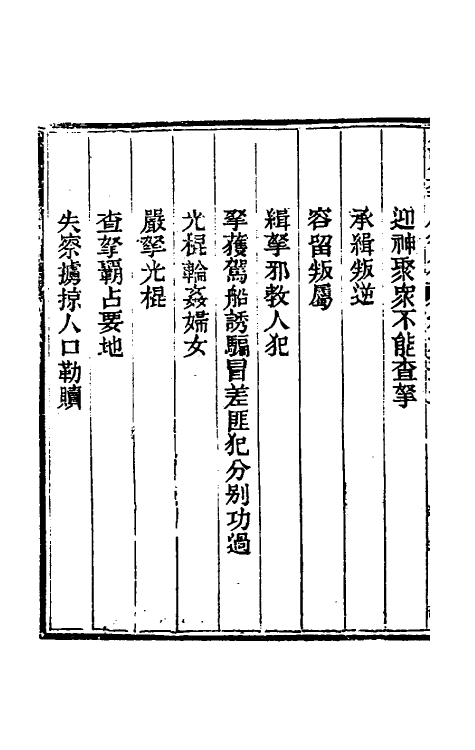 迎神聚衆不能查拏
承緝叛逆
容留叛屬
緝拏邪教人犯
拏獲駕船誘騙冒差匪犯分别功過
光棍輪姦婦女
嚴拏光棍
查拏霸占要地
失察擄掠人口勒贖